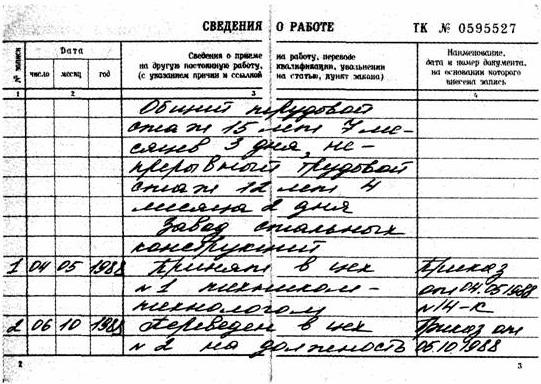 СВЕДЕНИЯ О РАБОТЕ ТК № 0595527
№ записи
Дата
число месяц год
Сведения о приеме на работу, переводе
на другую постоянную работу, квалификации, увольнении
(с указанием причин и ссылкой на статью, пункт закона)
Наименование,
дата и номер документа,
на основании которого
внесена запись
1 2 3 4
Общий трудовой
стаж 15 лет 7 ме-
сяцев 3 дня, не-
прерывный трудовой
стаж 12 лет 4
месяца 2 дня
Завод стальных
конструкций
1 04 05 1988 Принят в цех Приказ
№ 1 техником- от 04.05.1988
технологом № 14-к
2 06 10 1988 Переведен в цех Приказ от
№ 2 на должность 05.10.1988
2 3